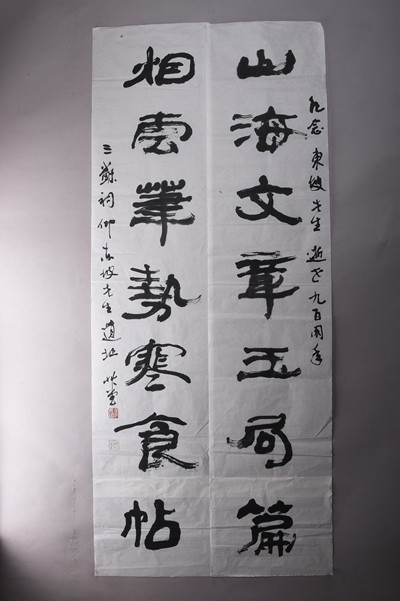 纪念东坡先生逝世九百周年
山海文章玉局篇
烟云笔势寒食帖
三苏祠仰东坡先生遗址